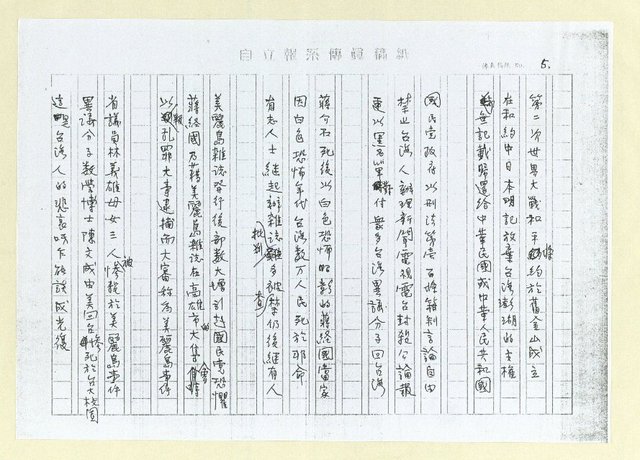 自立報系傳真稿紙
5.
第二次世界大戰和平條約於舊金山成立
在和約中日本明記放棄台灣澎湖的主權
並無記載歸還給中華民國或中華人民共和國
國民黨政府以刑法第壹百條箝制言論自由
禁止台灣人辦理新聞電視電台封殺公論報
更以黑名單對付眾多台灣異議分子回台灣
蔣介石死後以白色恐怖昭彰的蔣經國當家
因白色恐怖年代台灣數萬人民死於非命
有志人士繼起辦雜誌批判雖多被禁查仍後繼有人
美麗島雜誌發行後部數大增引起國民黨恐懼
蔣經國乃藉美麗島雜誌在高雄市的大集會時
以叛亂罪大事逮捕而大審稱為美麗島事件
省議員林義雄母女三人被慘殺於美麗島事件
異議分子數學博士陳文成由美回台慘死於台大校園
這是台灣人的悲哀呀乍能談成光復